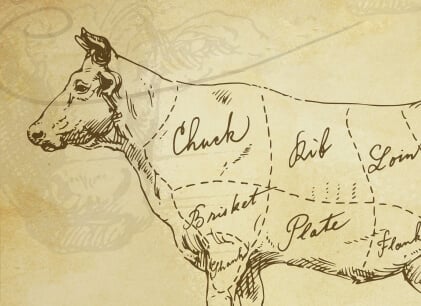 Chuck
Rib
Loin
Brisket
Plate
Shank
Flank